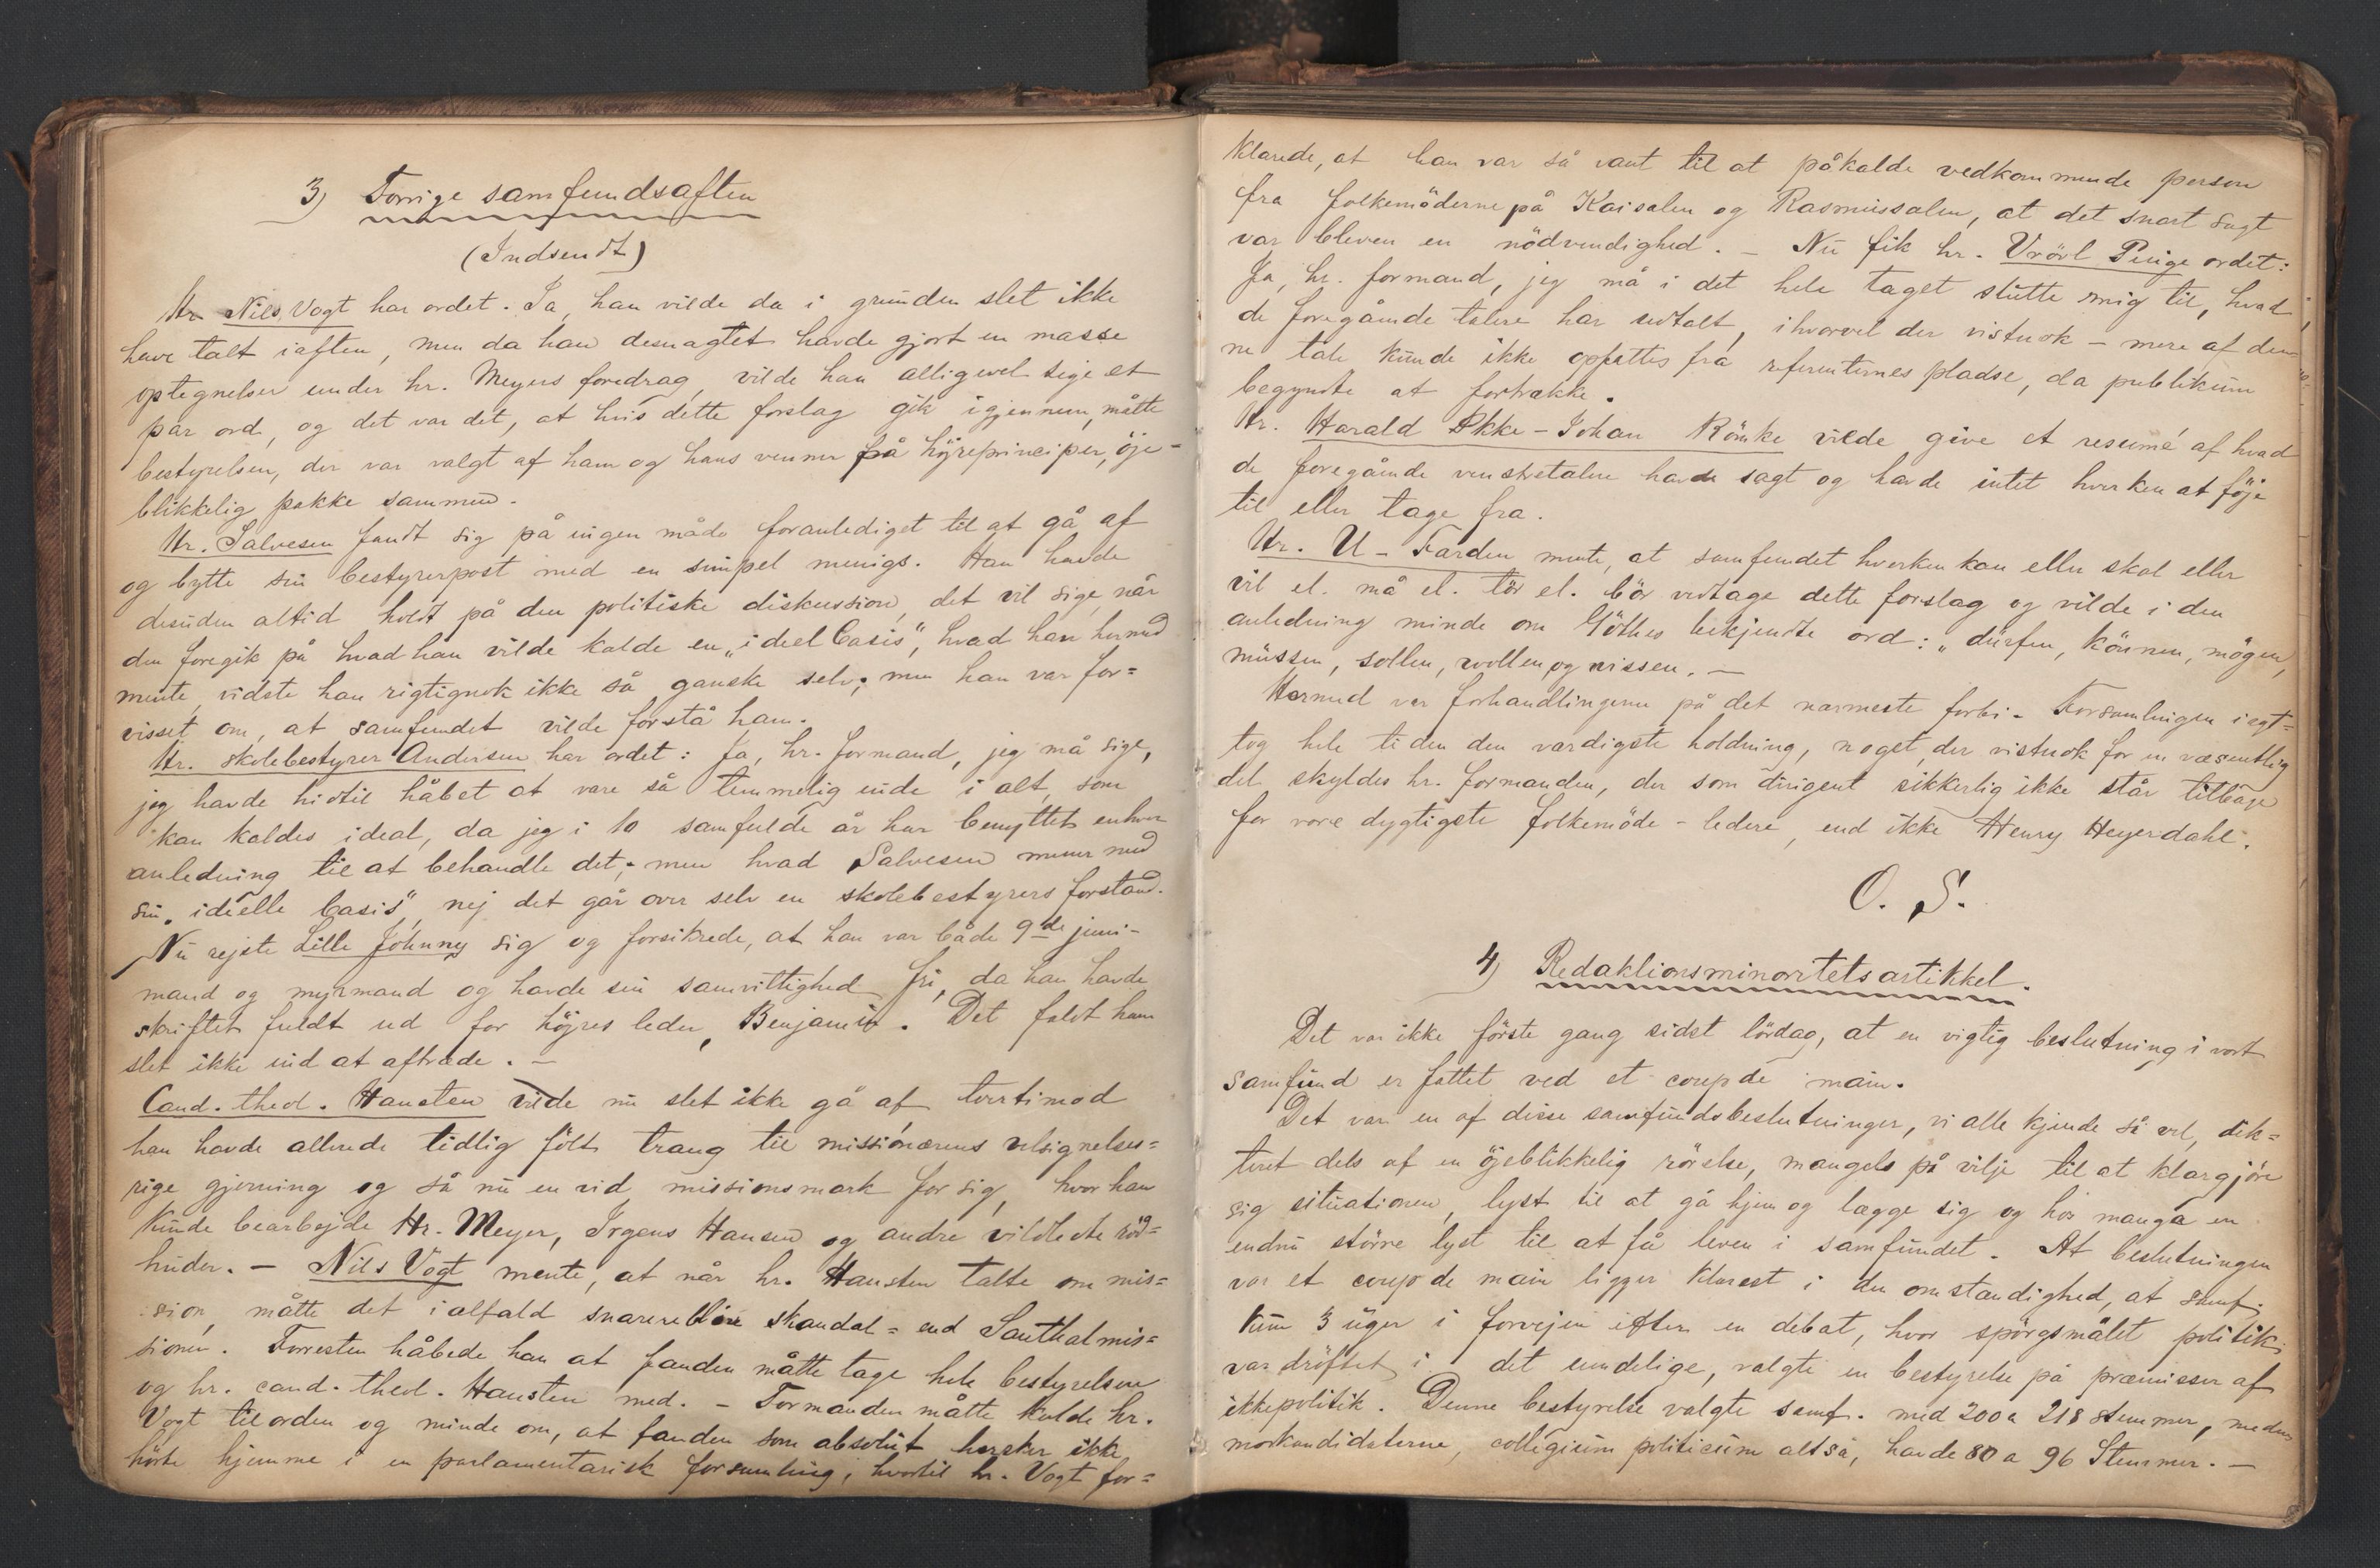 3) Forrige samfundsaften
(Indsendt)
Hr. Nils Vogt har ordet. Ja, han vilde da i grunden slet ikke
have talt iaften, men da han desuagtet havde gjort en masse
optegnelser under hr. Meyers foredrag, vilde han alligevel sige et
par ord, og det var det, at hvis dette forslag gik igjennem, måtte
bestyrelsen, der var valgt af ham og hans venner på höjreprinciper, öje-
blikkelig pakke sammen.
Hr. Salvesen fandt sig på ingen måde foranlediget til at gå af
og bytte sin bestyrerpost med en simpel menigs. Han havde
desuden altid holdt på den politiske diskussion, det vil sige, når
den foregik på hvad han vilde kalde en "ideel basis", hvad han hermed
mente, vidste han rigtignok ikke så ganske selv; men han var for=
visset om, at samfundet vilde forstå ham.
Hr. skolebestyrer Andersen har ordet: Ja, hr. formand, jeg må sige,
jeg havde hidtil håbet at være så temmelig inde i alt, som
kan kaldes ideal, da jeg i 10 samfulde år har benyttet enhver
anledning til at behandle det; men hvad Salvesen mener med
sin "ideelle basis", nej det går over selv en skolebestyrers forstand.
Nu rejste Lille Johnny sig og forsikrede, at han var både 9de juni-
mand og myrmand og havde sin samvittighed fri, da han havde
skriftet fuldt ud for höjres leder, Benjamin. Det faldt ham
slet ikke ind at aftræde. —
Cand. theol. Hansten vilde nu slet ikke gå af, tvertimod
han havde allerede tidlig fölt trang til missionærens velsignelses=
rige gjerning og så nu en vid missionsmark for sig, hvor han
kunde bearbejde Hr. Meyer, Irgens Hansen og andre vildledte röd=
huder. — Nils Vogt mente, at når hr. Hansten talte om mis=
sion, måtte det ialfald snarere blive skandal= end Santhalmis=
sionen. Forresten håbede han at fanden måtte tage hele bestyrelsen
og hr. cand. theol. Hansten med. — Formanden måtte kalde hr.
Vogt til orden og minde om, at fanden som absolut hersker ikke
hörte hjemme i en parlamentarisk forsamling, hvortil hr. Vogt for=
klarede, at han var så vant til at påkalde vedkommende person
fra folkemöderne på Kaisalen og Rasmussalen, at det snart sagt
var bleven en nödvendighed. — Nu fik hr. Vrövl Pinge ordet:
Ja, hr. formand, jeg må i det hele taget slutte mig til, hvad
de foregående talere har udtalt, ihvorvel der vistnok — mere af den=
ne tale kunde ikke opfattes fra referenternes pladse, da publikum
begyndte at fortrække.
Hr. Harald Ikke-Johan Römke vilde give et resumé af hvad
de foregående venstretalere havde sagt og havde intet hverken at föje
til eller tage fra.
Hr. U-Farden mente, at samfundet hverken kan eller skal eller
vil el. må el. tör el. bör vedtage dette forslag og vilde i den
anledning minde om Göthes bekjendte ord: "dürfen, können, mögen,
müssen, sollen, wollen og wissen. —
Hermed var forhandlingerne på det nærmeste forbi. Forsamlingen iagt=
tog hele tiden den værdigste holdning, noget, der vistnok for en væsentlig
del skyldes hr. formanden, der som dirigent sikkerlig ikke står tilbage
for vore dygtigste folkemöde-ledere, end ikke Henry Heyerdahl.
O. S.
4) Redaktionsminoritetsartikkel.
Det var ikke förste gang sidst lördag, at en vigtig beslutning i vort
samfund er fattet ved et coup de main.
Det var en af disse samfundsbeslutninger, vi alle kjende så vel, dik=
teret dels af en öjeblikkelig rörelse, mangels på vilje til at klargjöre
sig situationen, lyst til at gå hjem og lægge sig og hos mange en
endnu större lyst til at få leven i samfundet. At beslutningen
var et coup de main ligger klarest i den omstændighed, at samf.
kun 3 uger i forvejen efter en debat, hvor spörgsmålet politik
var dröftet i det uendelige, valgte en bestyrelse på præmisser af
ikkepolitik. Denne bestyrelse valgte samf. med 200 a 218 stemmer, medens
morkandidaterne, collegium politicum altså, havde 80 a 96 Stemmer. —